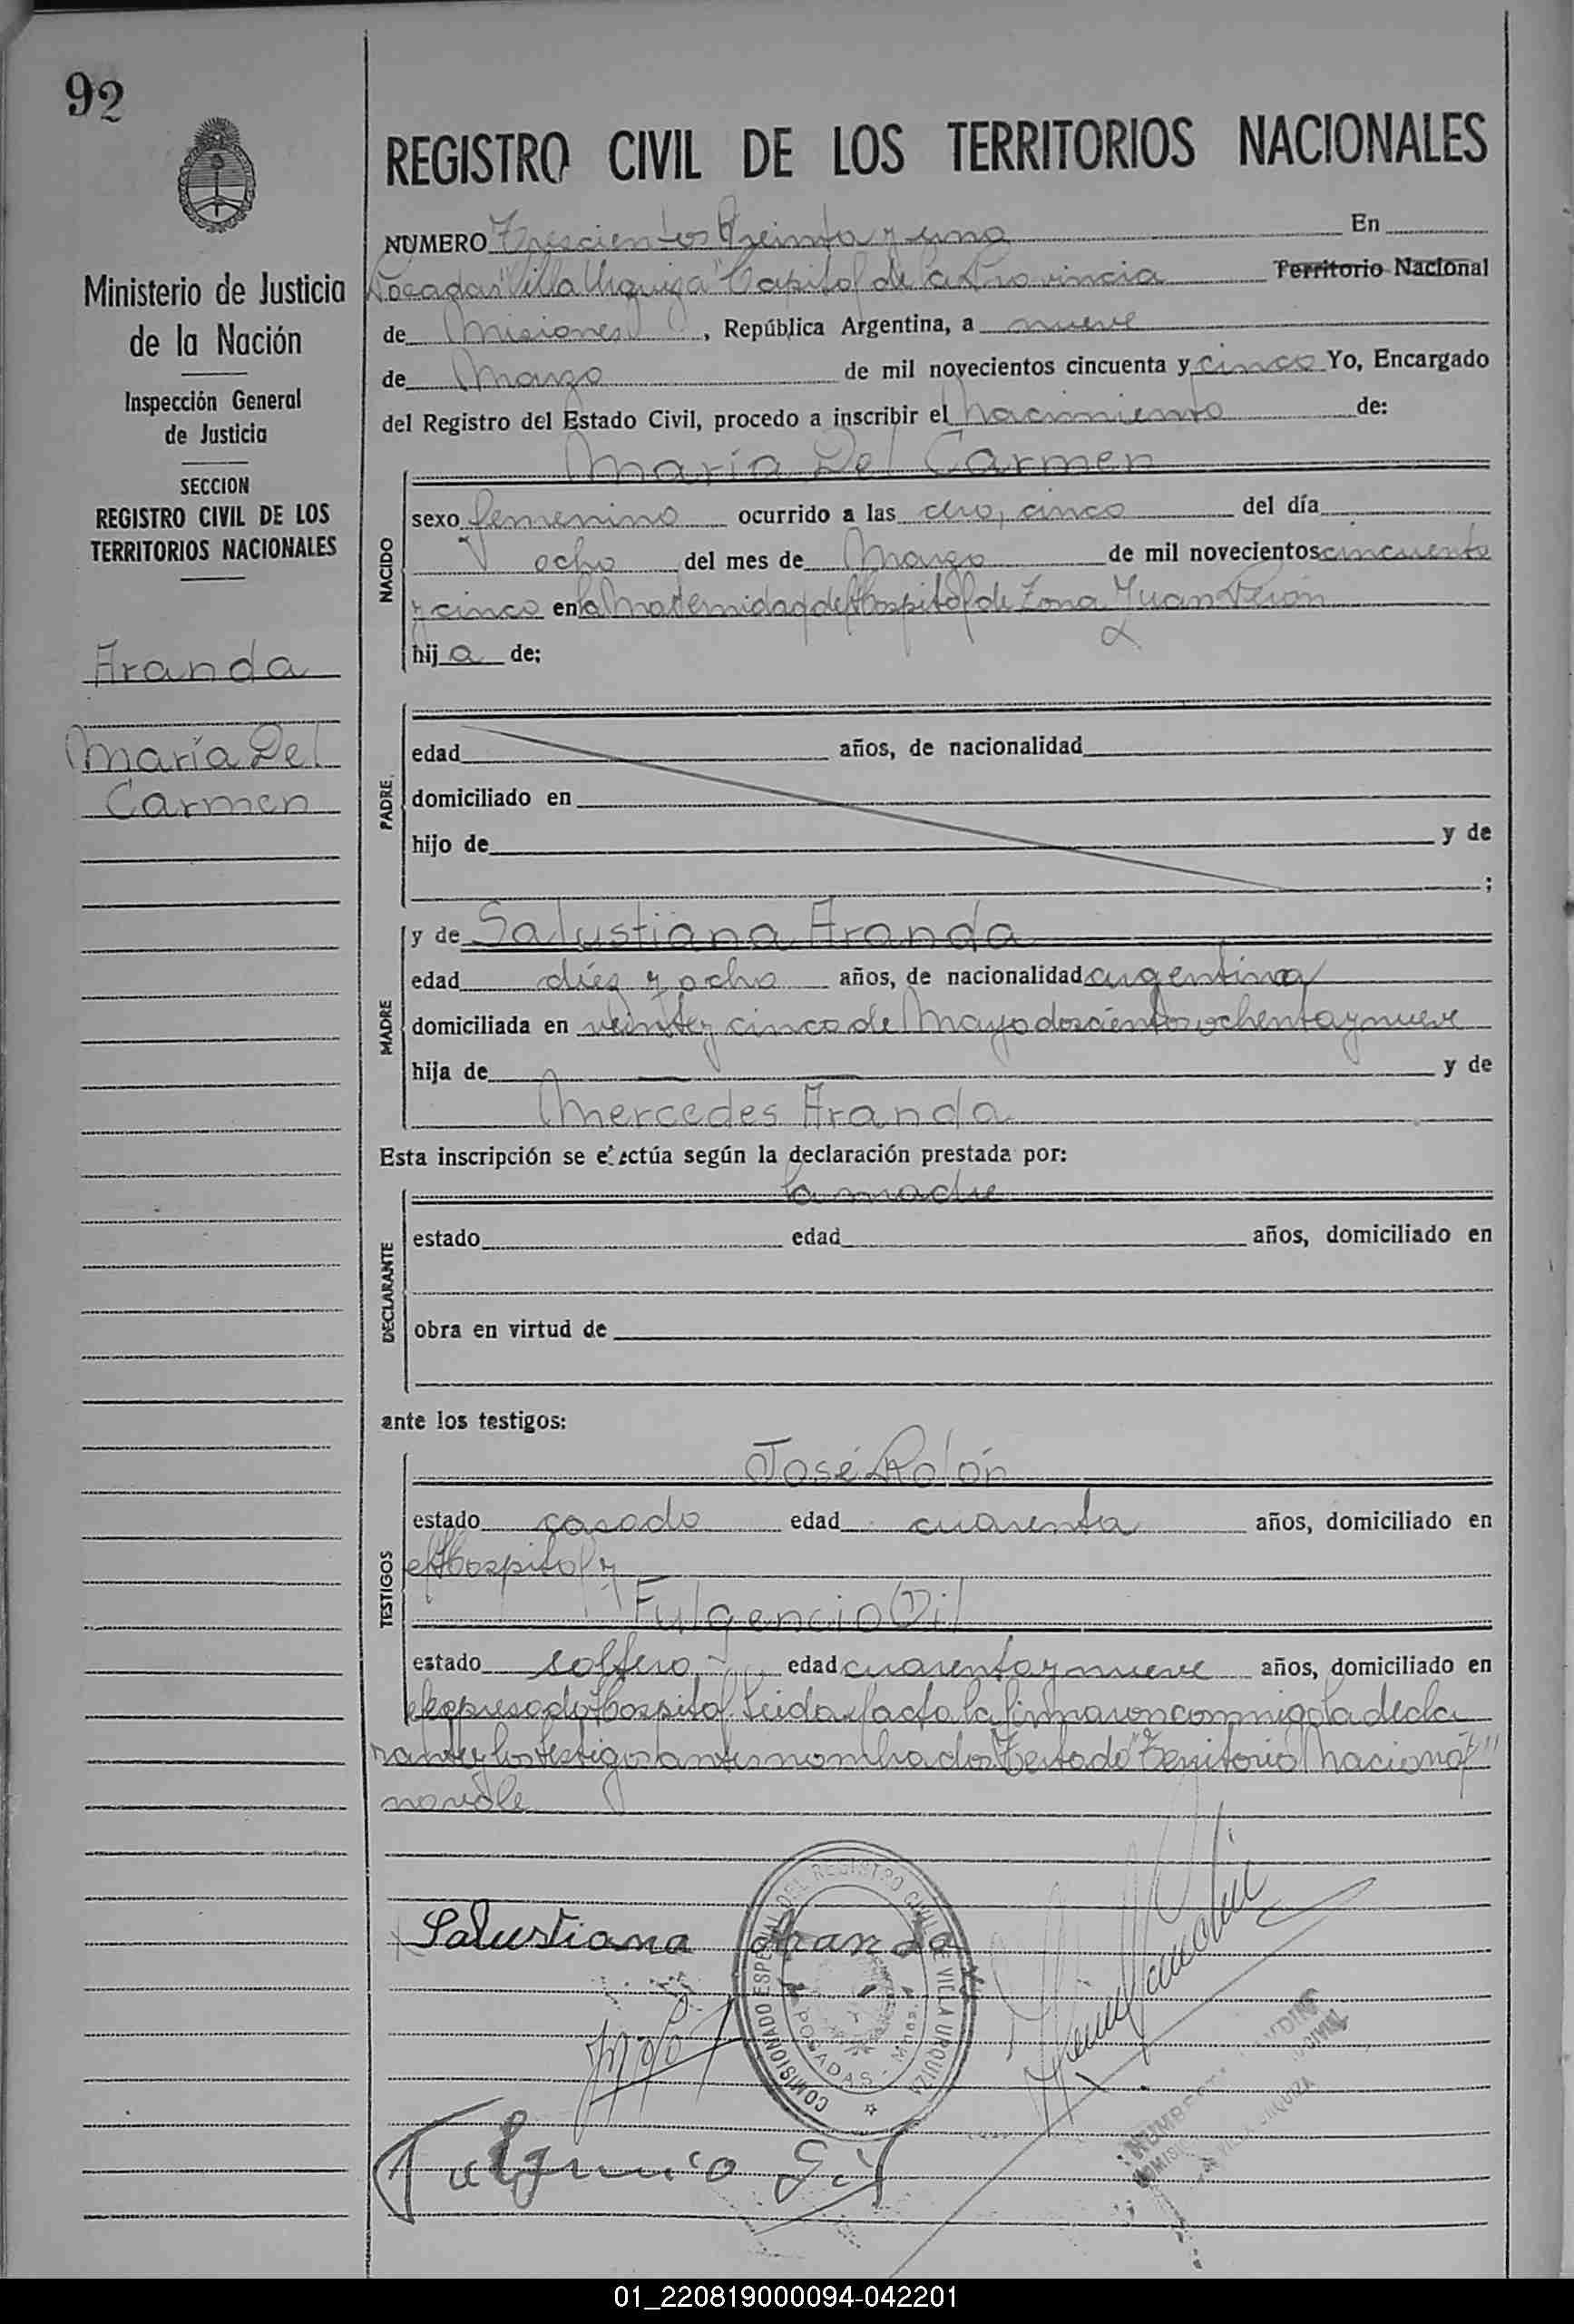 92
Ministerio de Justicia
de la Nación
Inspección General
de Justicia
SECCION
REGISTRO CIVIL DE LOS
TERRITORIOS NACIONALES
Aranda
María Del
Carmen
REGISTRO CIVIL DE LOS TERRITORIOS NACIONALES
NUMERO Trescientos treinta y uno En
Posadas "Villa Urquiza" Capital de la Provincia Territorio Nacional
de Misiones, República Argentina, a nueve
de Marzo de mil novecientos cincuenta y cinco Yo, Encargado
del Registro del Estado Civil, procedo a inscribir el nacimiento de:
María Del Carmen
NACIDO
sexo femenino ocurrido a las cero, cinco del día
ocho del mes de Marzo de mil novecientos cincuenta
y cinco en la Maternidad del Hospital de Zona Juan Perón
hija de:
PADRE
edad años, de nacionalidad
domiciliado en
hijo de y de
;
MADRE
y de Salustiana Aranda
edad diez y ocho años, de nacionalidad argentina
domiciliada en veinte y cinco de Mayo doscientos ochenta y nueve
hija de y de
Mercedes Aranda
Esta inscripción se efectúa según la declaración prestada por:
la madre
DECLARANTE
estado edad años, domiciliado en
obra en virtud de
ante los testigos:
José Rolón
TESTIGOS
estado casado edad cuarenta años, domiciliado en
el Hospital y
Fulgencio Gil
estado soltero edad cuarenta y nueve años, domiciliado en
el expresado Hospital. Leida el acta la firmaron conmigo la decla
rante y los testigos antes nombrados Testado "Territorio Nacional"
no vale
Salustiana Aranda
COMISIONADO ESPECIAL DEL REGISTRO CIVIL DE VILLA URQUIZA
POSADAS - Mnes.
Fulgencio Gil
01_220819000094-042201